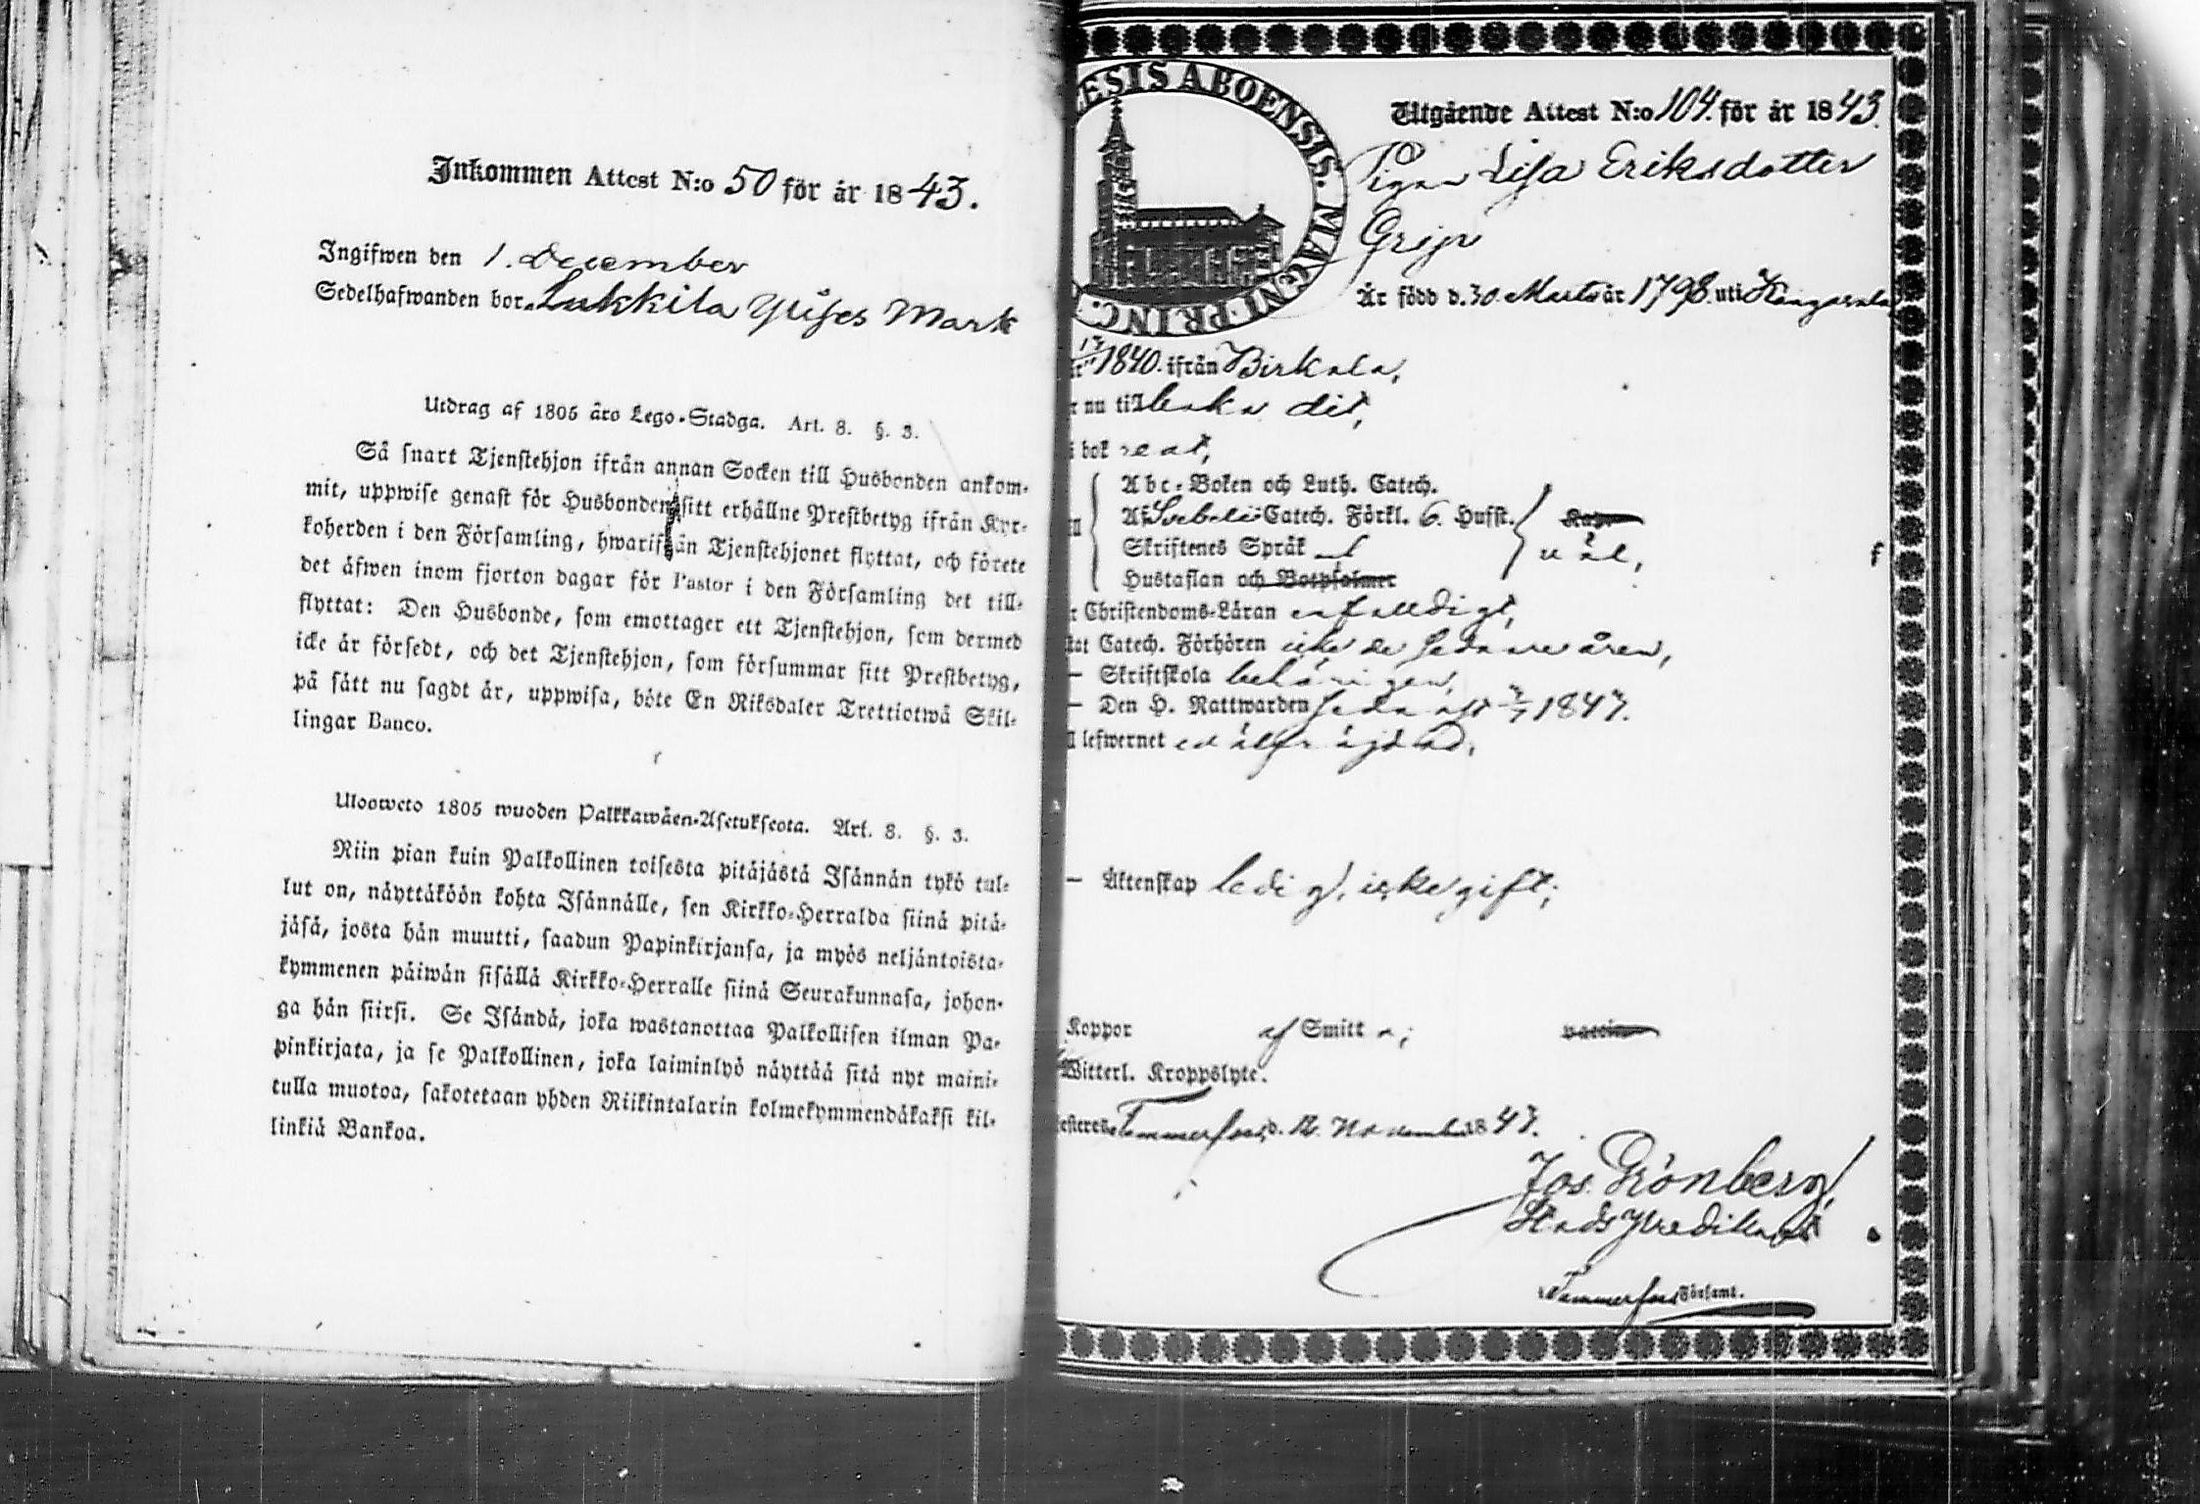 Inkommen Attest N:o 50 för år 1843.
Ingifwen den 1. December
Sedelhafwanden bor Lukkila Mark
Utdrag af 1805 års Lego-Stadga. Art. 8. §. 3.
Så snart Tjenstehjon ifrån annan Socken till Husbonden ankom-
mit, uppwise genast för Husbonden sitt erhållne Prestbetyg ifrån Kyr-
koherden i den Församling, hwarifrån Tjenstehjonet flyttat, och förete
det åfwen inom fjorton dagar för Pastor i den Församling det till-
flyttat: Den Husbonde, som emottager ett Tjenstehjon, som dermed
icke år försedt, och det Tjenstehjon, som försummar sitt Prestbetyg,
på sått nu sagdt år, uppwisa, böte En Riksdaler Trettiotwå Skil-
lingar Banco.
Uloosweto 1805 wuoden Palkkawåen-Asetuksesta. Art. 8. §. 3.
Niin pian kuin Palkollinen toisesta pitåjåstå Isånnån tykö tul-
lut on, nåyttåköön kohta Isånnålle, sen Kirkko-Herralda siinå pitå-
jåså, josta hån muutti, saadun Papinkirjansa, ja myös neljåntoista-
kymmenen påiwån sisållå Kirkko-Herralle siinå Seurakunnasa, johon-
ga hån siirsi. Se Isåndå, joka wastanottaa Palkollisen ilman Pa-
pinkirjata, ja se Palkollinen, joka laiminlyö nåyttåå sitå nyt maini-
tulla muotoa, sakotetaan yhden Riikintalarin kolmekymmendåkaksi kil-
linkiå Bankoa.
ESIS ABOENSIS. MAGNI PRINC.
Utgående Attest N:o 104. för år 1843.
Pigan Lisa Eriksdotter
Grip
År född d. 30. Marts år 1798. uti Kangasala
1840. ifrån Birkala,
nu tillbaka dit,
i bok
Abc-Boken och Luth. Catech.
Af Svebelii Catech. Förkl. 6. Husst.
Skriftenes Språk
Hustaflan och Botpsalmer
väl,
Christendoms-Låran enfalldigt,
Catech. Förhören icke de sednare åren,
— Skriftskola behörigen,
— Den H. Nattwarden sednast 1843.
lefwernet
— Åktenskap ledig, icke gift;
Koppor af Smitta;
Witterl. Kroppslyte.
Tammerfors d. 12. November 1843.
Jos. Grönberg,
Stads Predikant
Tammerfors Förfaml.